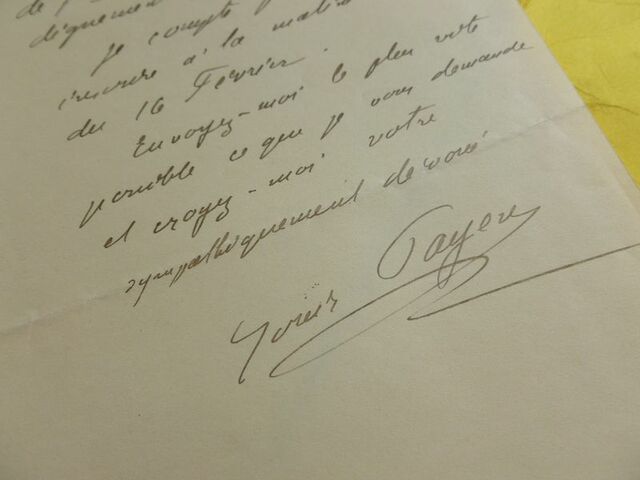 de
dignement
Je compte
inscrire à la matin
du 16 Février.
Envoyez-moi le plus vite
possible ce que je vous demande
et croyez-moi votre
sympathiquement dévoué
Louis Payen